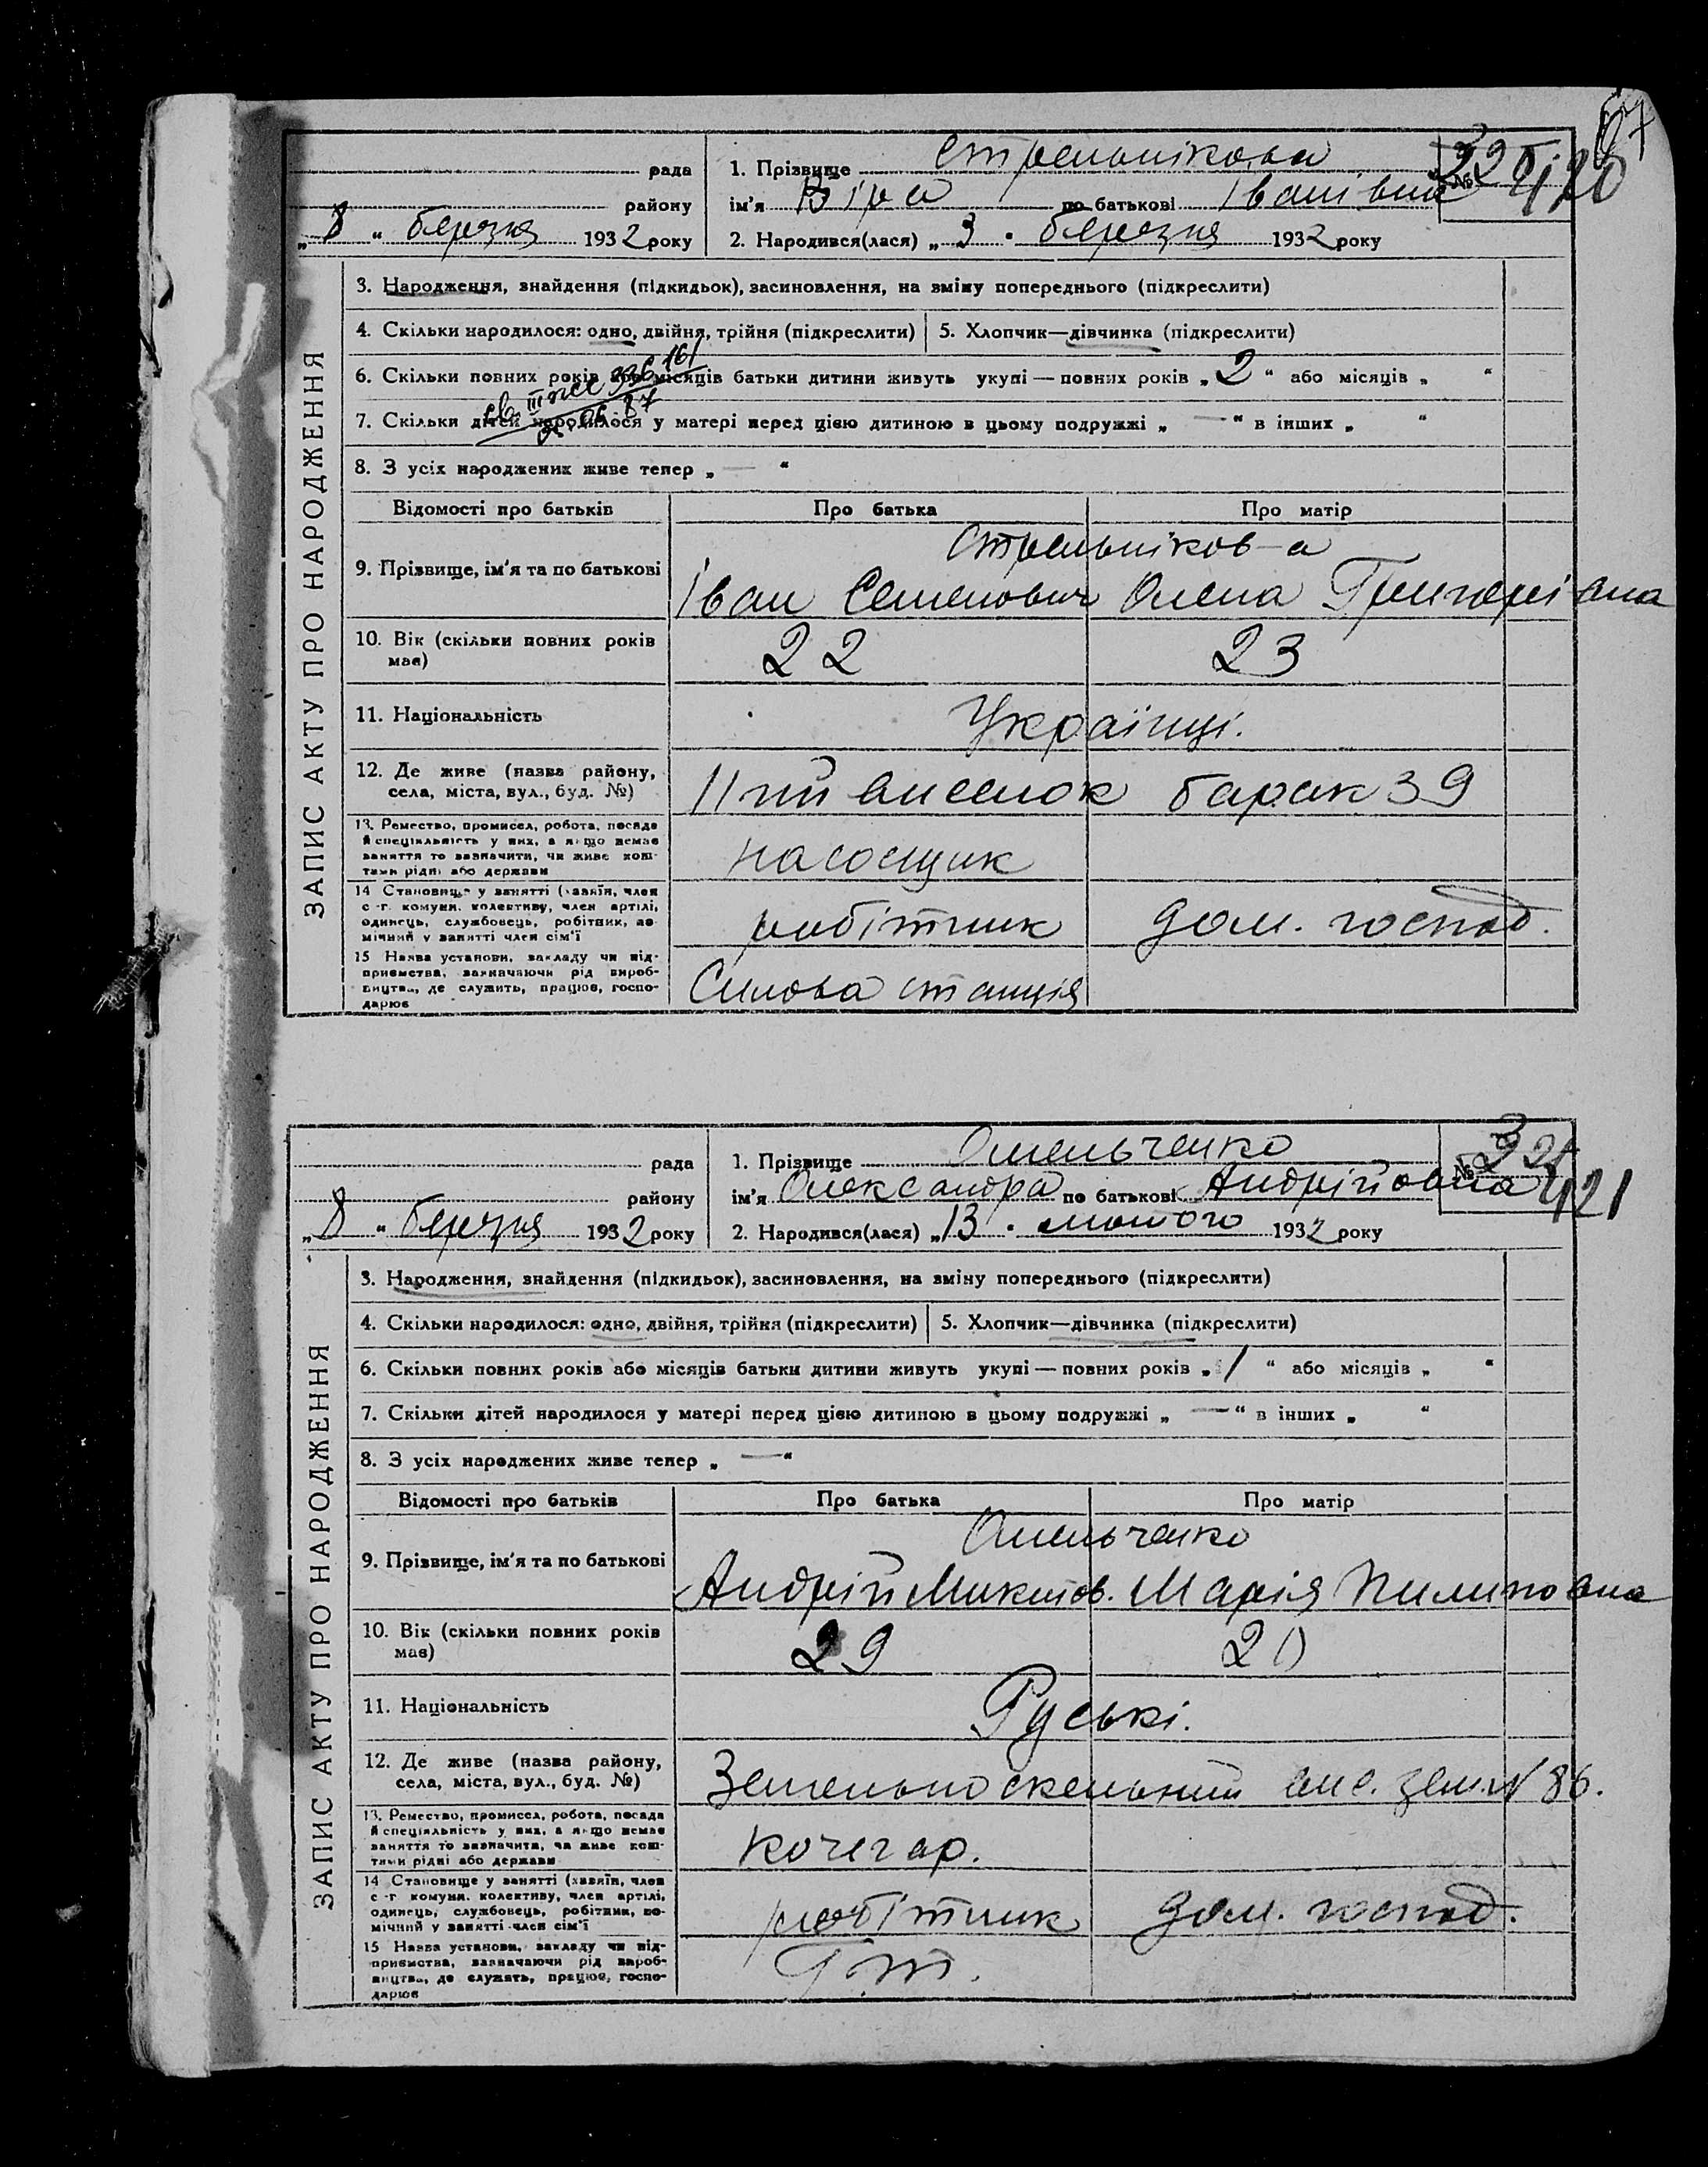 67
рада
району
„8“ березня 1932 року
1. Прізвище Стрельнікова
ім'я Віра по батькові Іванівна
№ 420
2. Народився(лася) „3“ березня 1932 року
ЗАПИС АКТУ ПРО НАРОДЖЕННЯ
3. Народження, знайдення (підкидьок), засиновлення, на зміну попереднього (підкреслити)
4. Скільки народилося: одно, двійня, трійня (підкреслити)
5. Хлопчик—дівчинка (підкреслити)
6. Скільки повних років або місяців батьки дитини живуть укупі — повних років „2“ або місяців „ “
7. Скільки дітей народилося у матері перед цією дитиною в цьому подружжі „—“ в інших „ “
8. З усіх народжених живе тепер „—“
Відомості про батьків Про батька Про матір
9. Прізвище, ім'я та по батькові
Стрельніков-а
Іван Семенович Олена Григорівна
10. Вік (скільки повних років має)
22 23
11. Національність Українці.
12. Де живе (назва району, села, міста, вул., буд. №)
11тий виселок барак 39
13. Ремество, промисел, робота, посада
й спеціяльність у них, а якщо немає
заняття то зазначити, чи живе кош-
тами рідні або держави
насосщик
14 Становище у занятті (хазяїн, член
с.-г. комуни, колективу, член артілі,
одинець, службовець, робітник, по-
мічний у занятті член сім'ї
робітник дом. господ.
15 Назва установи, закладу чи під-
приємства, зазначаючи рід вироб-
ництва, де служить, працює, госпо-
дарює
Силова станція
рада
району
„8“ березня 1932 року
1. Прізвище Омельченко
ім'я Олександра по батькові Андрійовна
№ 421
2. Народився(лася) „13“ лютого 1932 року
ЗАПИС АКТУ ПРО НАРОДЖЕННЯ
3. Народження, знайдення (підкидьок), засиновлення, на зміну попереднього (підкреслити)
4. Скільки народилося: одно, двійня, трійня (підкреслити)
5. Хлопчик—дівчинка (підкреслити)
6. Скільки повних років або місяців батьки дитини живуть укупі — повних років „1“ або місяців „ “
7. Скільки дітей народилося у матері перед цією дитиною в цьому подружжі „—“ в інших „ “
8. З усіх народжених живе тепер „—“
Відомості про батьків Про батька Про матір
9. Прізвище, ім'я та по батькові
Омельченко
Андрій Микитов. Марія Пилиповна
10. Вік (скільки повних років має)
29 20
11. Національність Руські.
12. Де живе (назва району, села, міста, вул., буд. №)
вис. зем. № 86.
13. Ремество, промисел, робота, посада
й спеціяльність у них, а якщо немає
заняття то зазначити, чи живе кош-
тами рідні або держави
кочегар.
14 Становище у занятті (хазяїн, член
с.-г. комуни, колективу, член артілі,
одинець, службовець, робітник, по-
мічний у занятті член сім'ї
робітник дом. господ.
15 Назва установи, закладу чи під-
приємства, зазначаючи рід вироб-
ництва, де служить, працює, госпо-
дарює